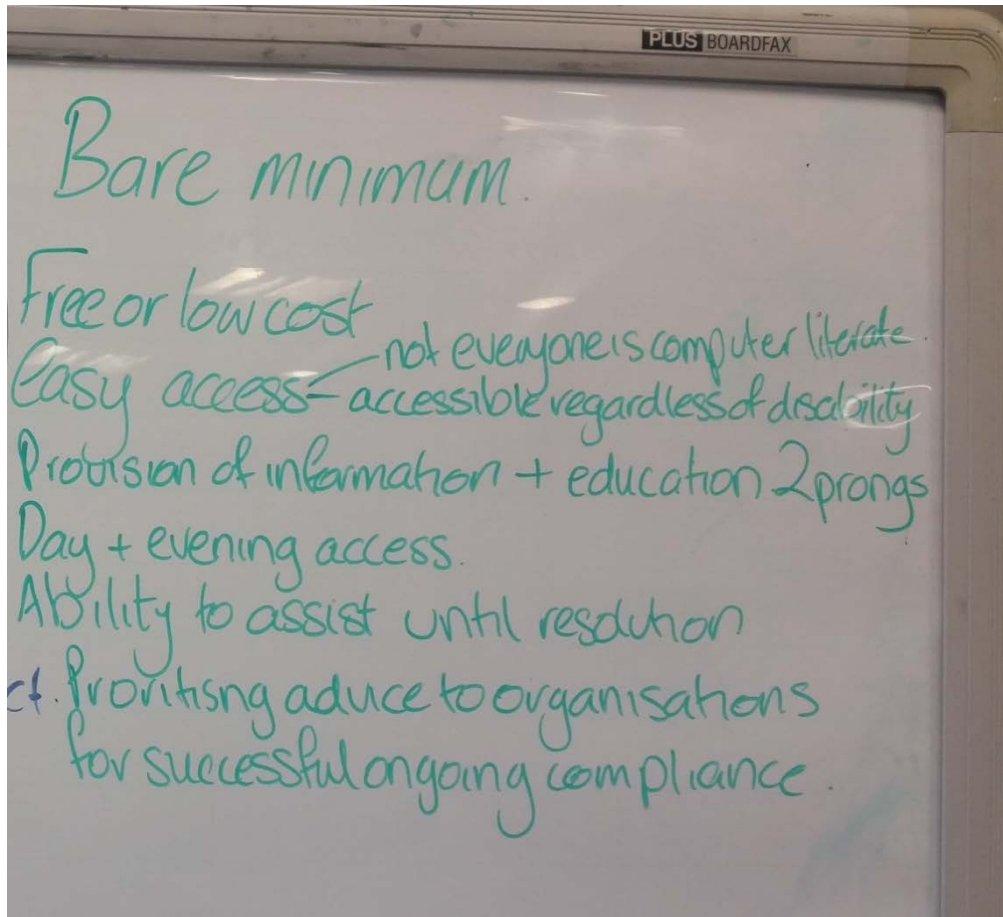 PLUS BOARDFAX
Bare minimum.
Free or low cost
not everyone is computer literate.
Easy access - accessible regardless of disability
Provision of information + education 2 prongs
Day + evening access.
Ability to assist until resolution
ct. Proritisng advice to organisations
for successful ongoing compliance.